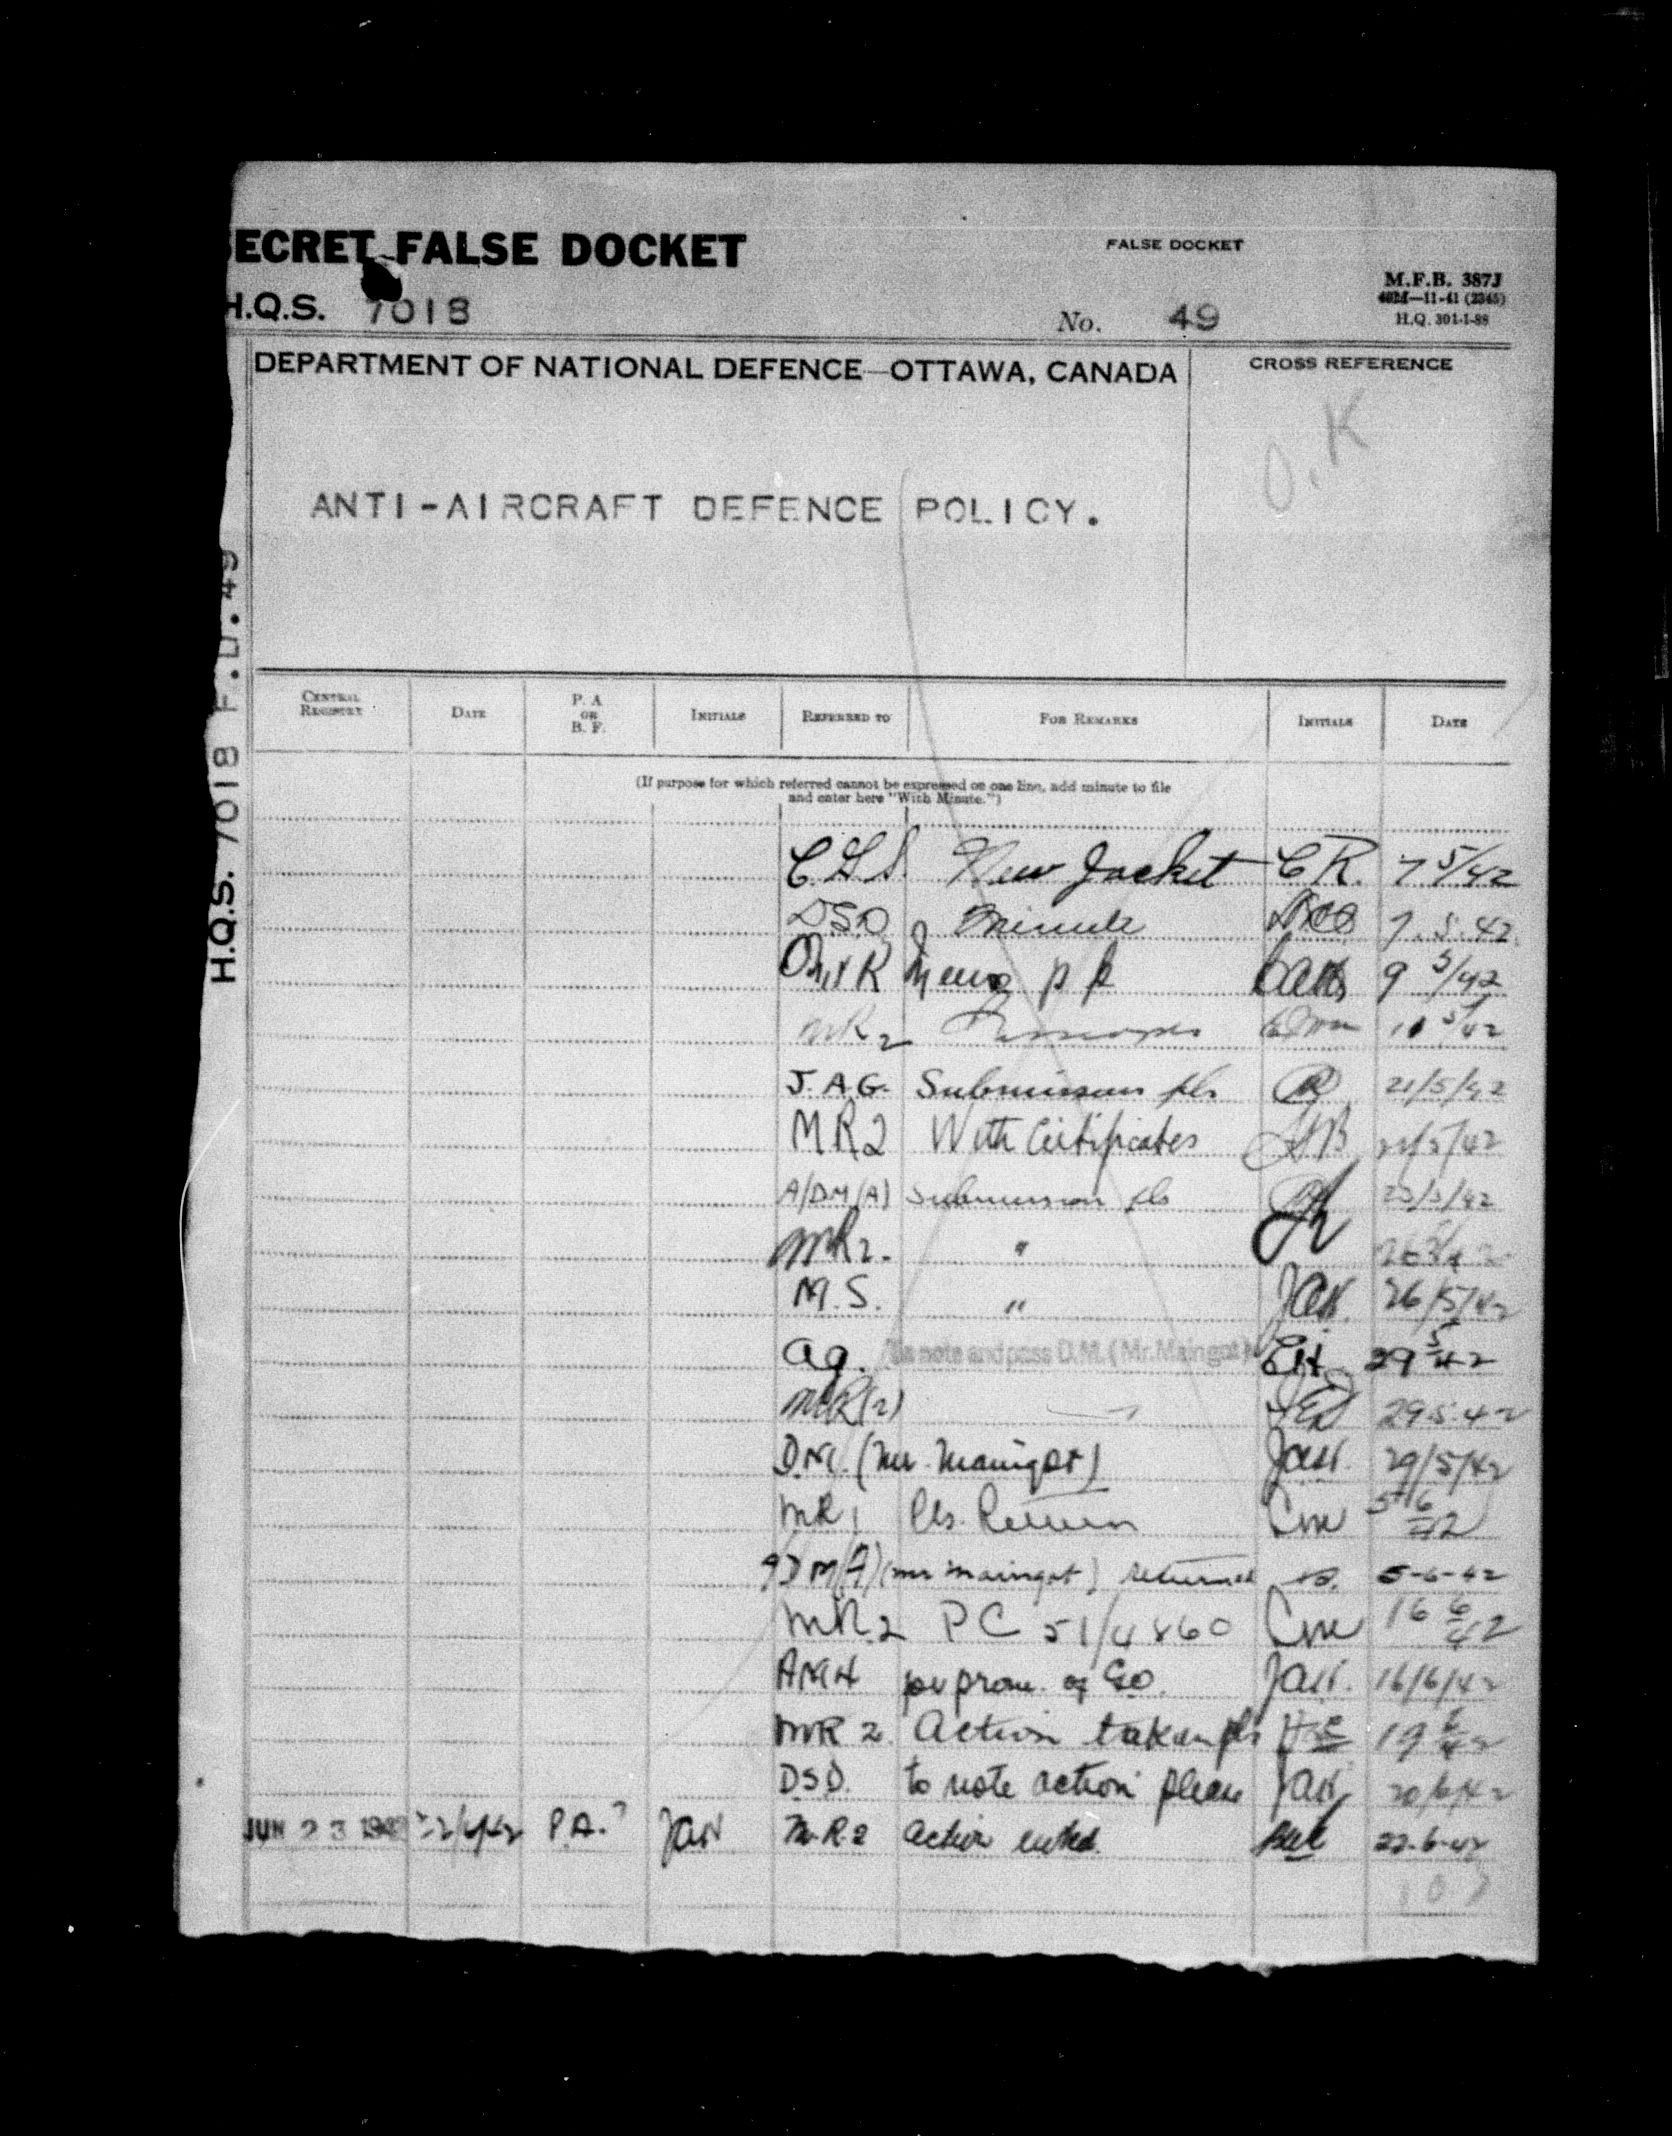 ECRET FALSE DOCKET
FALSE DOCKET
M.F.B. 387J
40M—11-41 (2345)
H.Q. 301-1-88
H.Q.S. 7018
No. 49
DEPARTMENT OF NATIONAL DEFENCE—OTTAWA, CANADA
CROSS REFERENCE
O.K
ANTI-AIRCRAFT DEFENCE POLICY.
H.Q.S. 7018 F.D. 49
CENTRAL REGISTRY DATE P. A OR B. F. INITIALS REFERRED TO FOR REMARKS INITIALS DATE
(If purpose for which referred cannot be expressed on one line, add minute to file
and enter here "With Minute.")
C.G.S. New Jacket C.R. 7 5/42
DSD Minute 7.5.42
9 5/42
MR2
J.A.G. Submission pls 21/5/42
MR2 With Certificates
A/DM(A) Submission pls
MR2. "
M.S. " Jan. 26/5/42
ag. To note and pass D.M. (Mr. Maingot) 29 5/42
MR(2) 29 5 42
D.M. (Mr. Maingot) Jan. 29/5/42
MR1 Pls. Return 5 6/42
DM(A) (Mr Maingot) returned 5-6-42
MR2 PC 51/4860 16 6/42
Jan. 16/6/42
MR2 Action taken pls 19 6/42
DSD. to note action please Jan 20/6/42
JUN 23 1942 22/6/42 P.A. Jan M.R.2 Action noted. 22-6-42